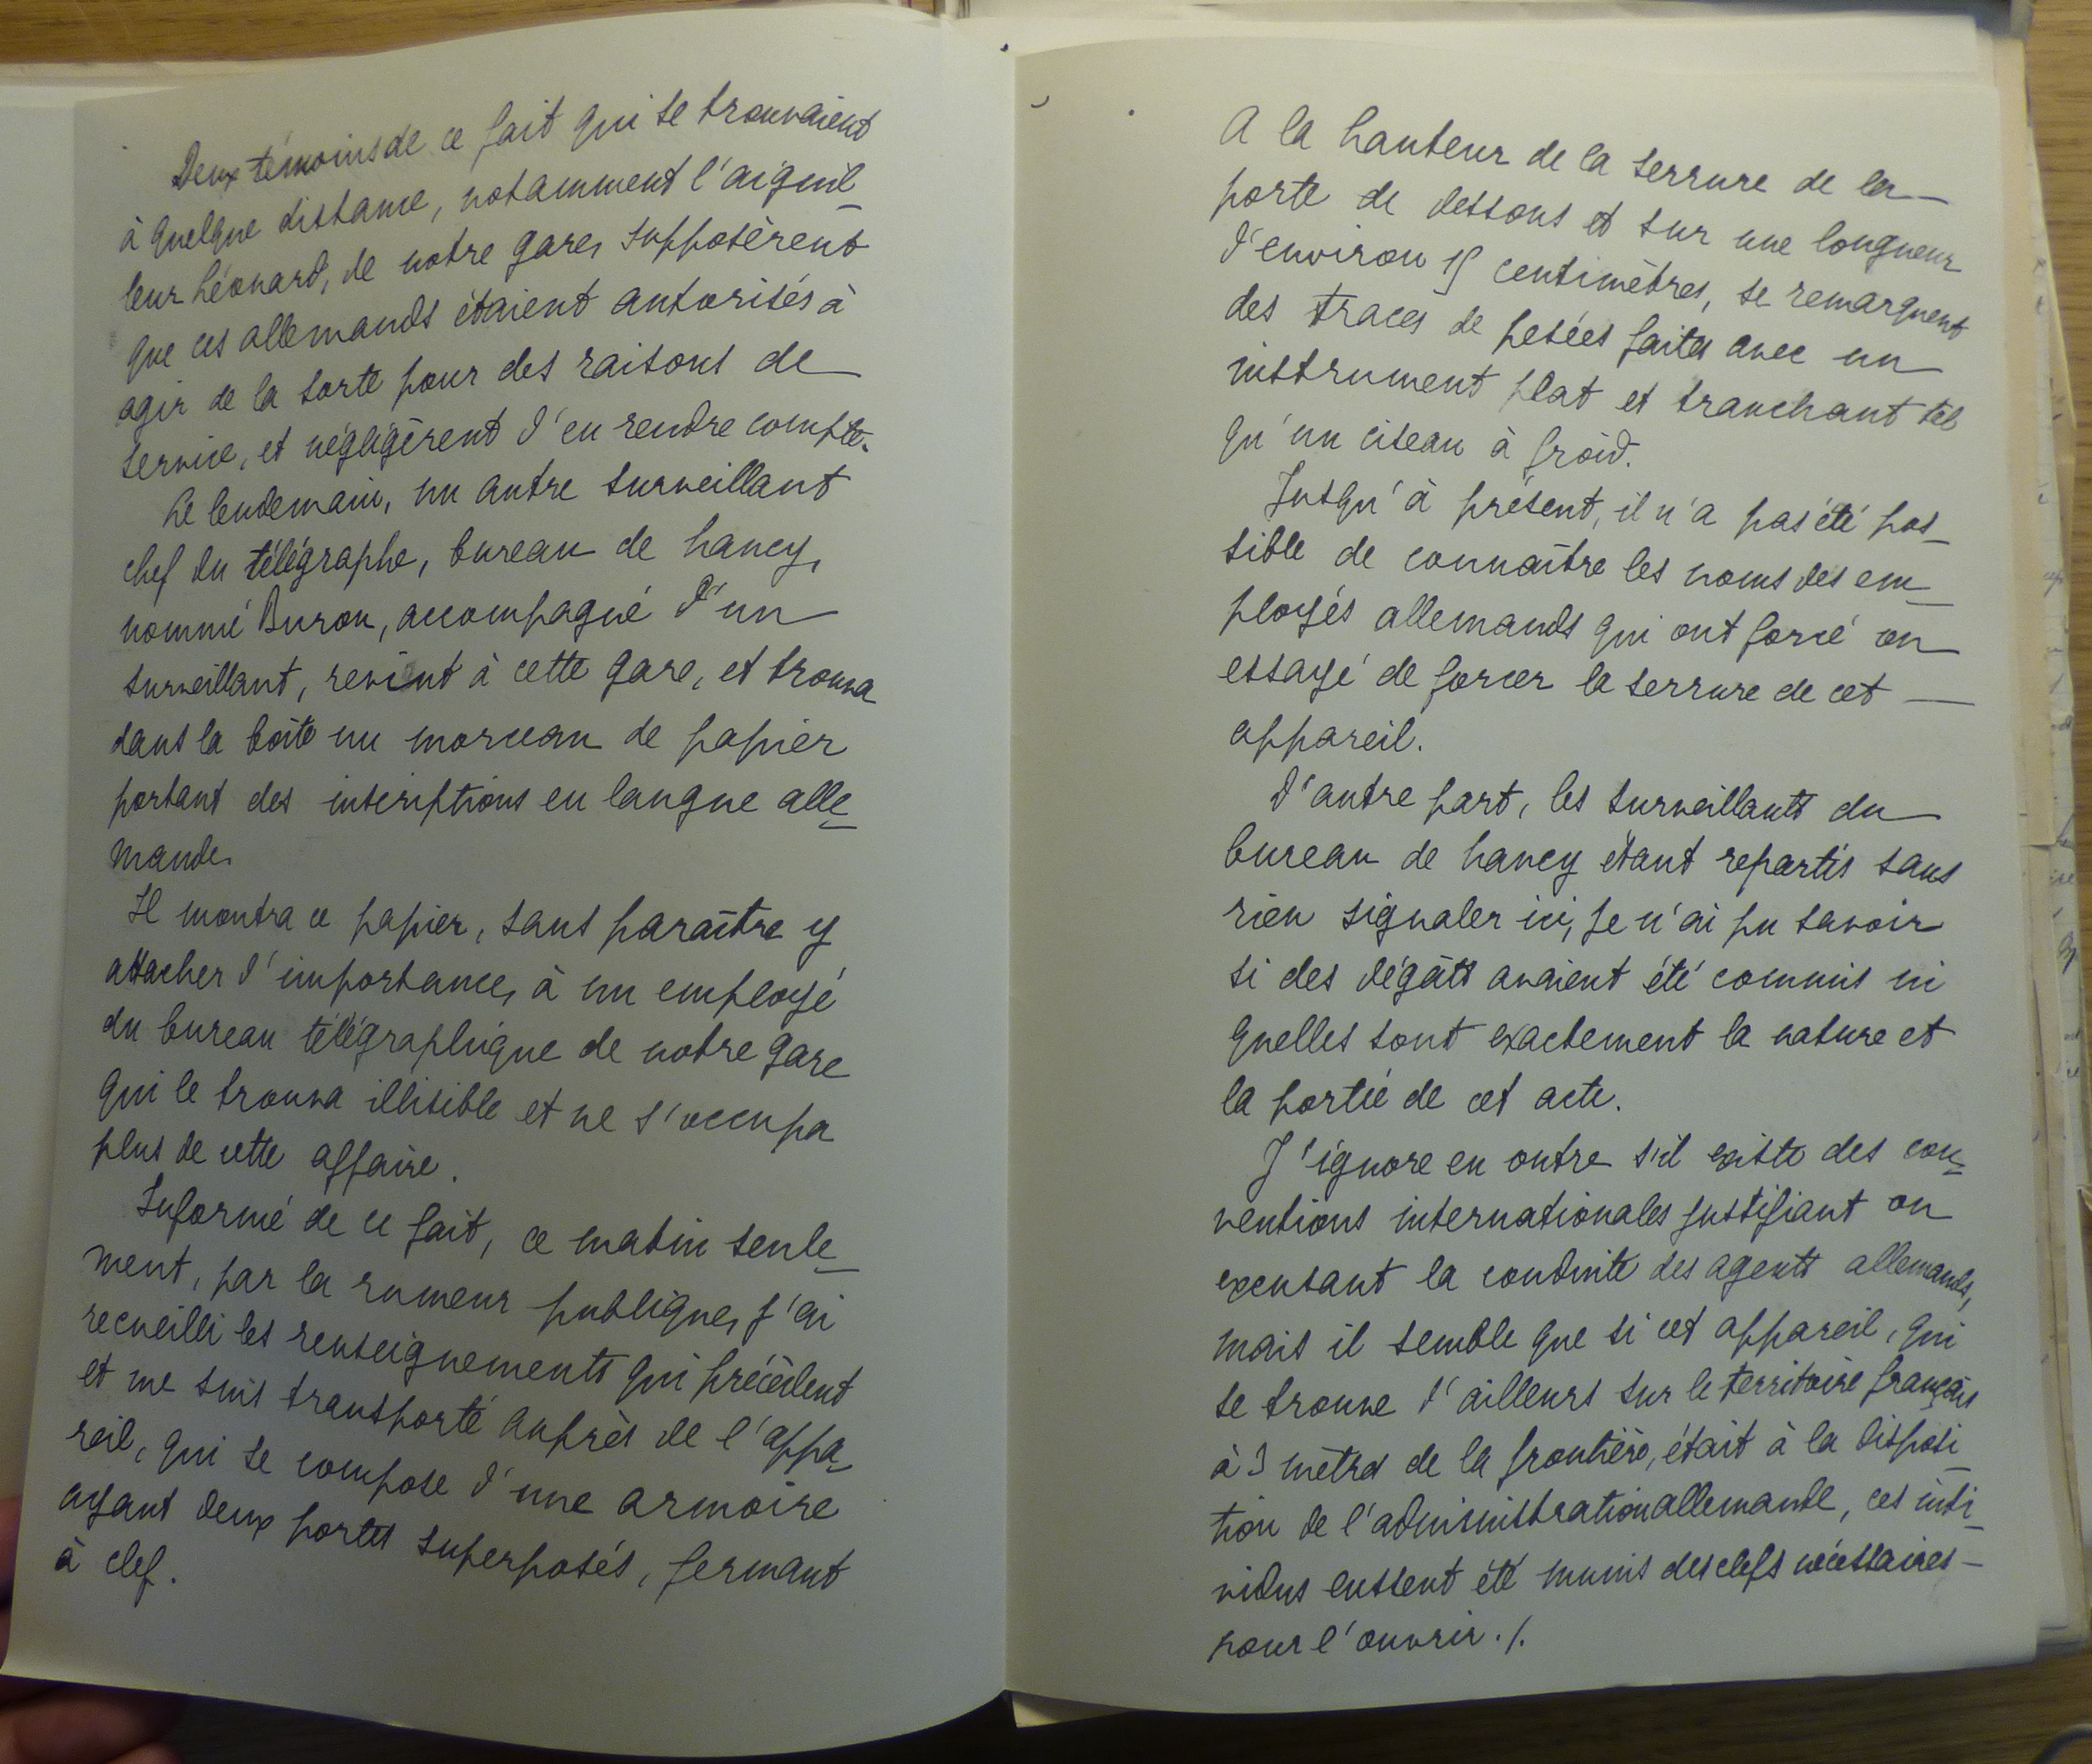 Deux témoins de ce fait qui se trouvaient
à quelque distance, notamment l'aiguil-
leur Léonard, de notre gare, supposèrent
que ces allemands étaient autorisés à
agir de la sorte pour des raisons de
service, et négligèrent d'en rendre compte.
Le lendemain, un autre surveillant
chef du télégraphe, bureau de Nancy,
nommé Buron, accompagné d'un
surveillant, revint à cette gare, et trouva
dans la boîte un morceau de papier
portant des inscriptions en langue alle-
mande.
Il montra ce papier, sans paraître y
attacher d'importance, à un employé
du bureau télégraphique de notre gare
qui le trouva illisible et ne s'occupa
plus de cette affaire.
Informé de ce fait, ce matin seule-
ment, par la rumeur publique, j'ai
recueilli les renseignements qui précèdent
et me suis transporté auprès de l'appa-
reil, qui se compose d'une armoire
ayant deux portes superposés, fermant
à clef.
A la hauteur de la serrure de la
porte de dessous et sur une longueur
d'environ 15 centimètres, se remarquent
des traces de pesées faites avec un
instrument plat et tranchant tel
qu'un ciseau à froid.
Jusqu'à présent, il n'a pas été pos-
sible de connaître les noms des em-
ployés allemands qui ont forcé ou
essayé de forcer la serrure de cet
appareil.
D'autre part, les surveillants du
bureau de Nancy étant repartis sans
rien signaler ici, je n'ai pu savoir
si des dégâts avaient été commis ni
quelles sont exactement la nature et
la portée de cet acte.
J'ignore en outre s'il existe des con-
ventions internationales justifiant ou
excusant la conduite des agents allemands,
mais il semble que si cet appareil, qui
se trouve d'ailleurs sur le territoire français
à 3 mètres de la frontière, était à la disposi-
tion de l'administration allemande, ces indi-
vidus eussent été munis des clefs nécessaires
pour l'ouvrir./.